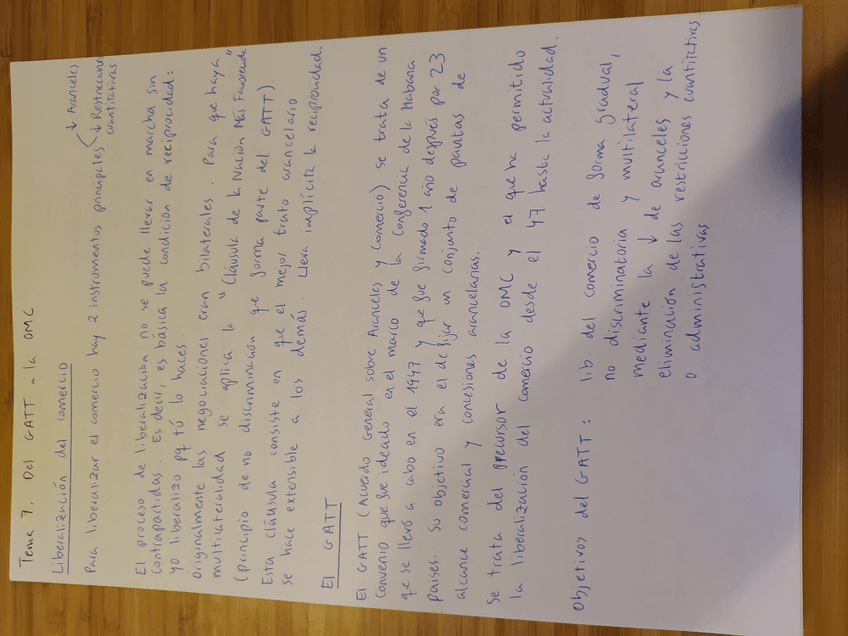 Tema 7. Del GATT a la OMC
Liberalización del comercio
Para liberalizar el comercio hay 2 instrumentos principales
↓ Aranceles
↓ Restricciones
cuantitativas
El proceso de liberalización no se puede llevar en marcha sin
contrapartidas. Es decir, es básica la condición de reciprocidad:
yo liberalizo pq tú lo haces.
Originalmente las negociaciones eran bilaterales. Para que haya
multilateralidad se aplica la "Cláusula de la Nación Más Favorecida"
(principio de no discriminación que forma parte del GATT).
Esta cláusula consiste en que el mejor trato arancelario
se hace extensible a los demás. Lleva implícita la reciprocidad.
El GATT
El GATT (Acuerdo General sobre Aranceles y Comercio) se trata de un
convenio que fue ideado en el marco de la Conferencia de la Habana
que se llevó a cabo en el 1947 y que fue firmado 1 año después por 23
países. Su objetivo era el de fijar un conjunto de pautas de
alcance comercial y concesiones arancelarias.
Se trata del precursor de la OMC y el que ha permitido
la liberalización del comercio desde el 47 hasta la actualidad.
Objetivos del GATT: lib. del comercio de forma gradual,
no discriminatoria y multilateral
mediante la ↓ de aranceles y la
eliminación de las restricciones cuantitativas
o administrativas